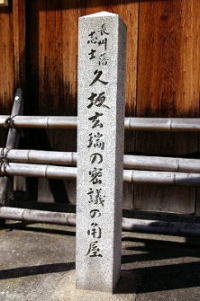 長州藩
志士
久坂玄瑞の密議の角屋